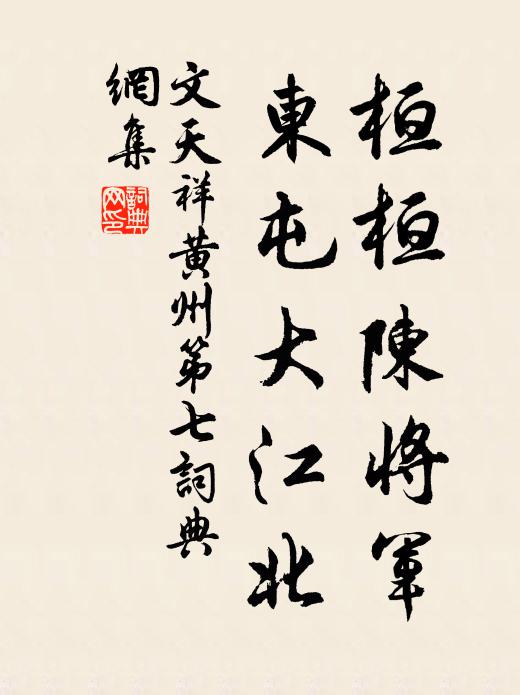 桓桓陳將軍
東屯大江北
文天祥黃州第七詞典
網集
詞典网印